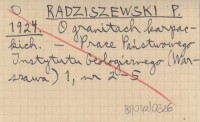 RADZISZEWSKI P.
1924. O granitach karpac-
kich. — Prace Państwowego
Instytutu Geologicznego (War-
szawa) 1, nr 2-5